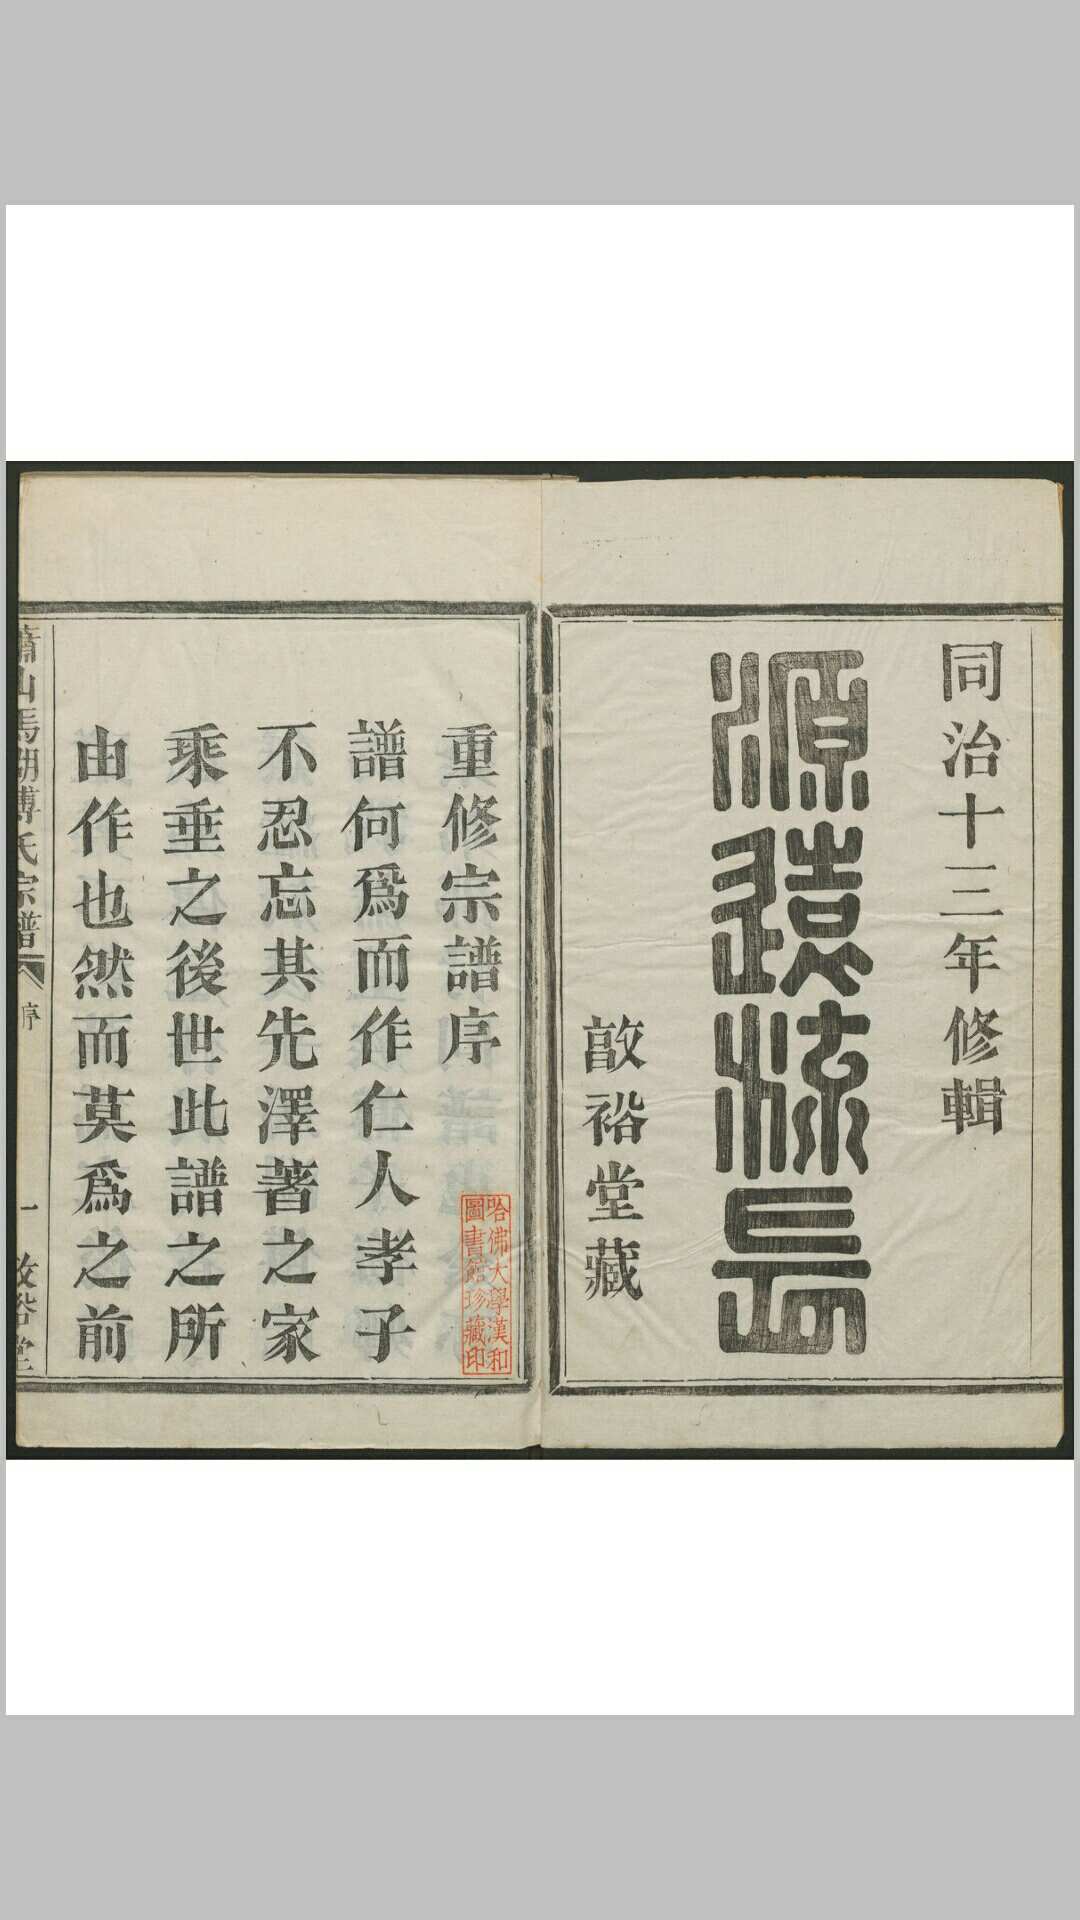 同治十三年修輯
源遠流長
啟裕堂藏
重修宗譜序
譜何爲而作仁人孝子
不忍忘其先澤著之家
乘垂之後世此譜之所
由作也然而莫爲之前
蕭山馬湖傅氏宗譜 序 一 啟裕堂
哈佛大學漢和
圖書館珍藏印